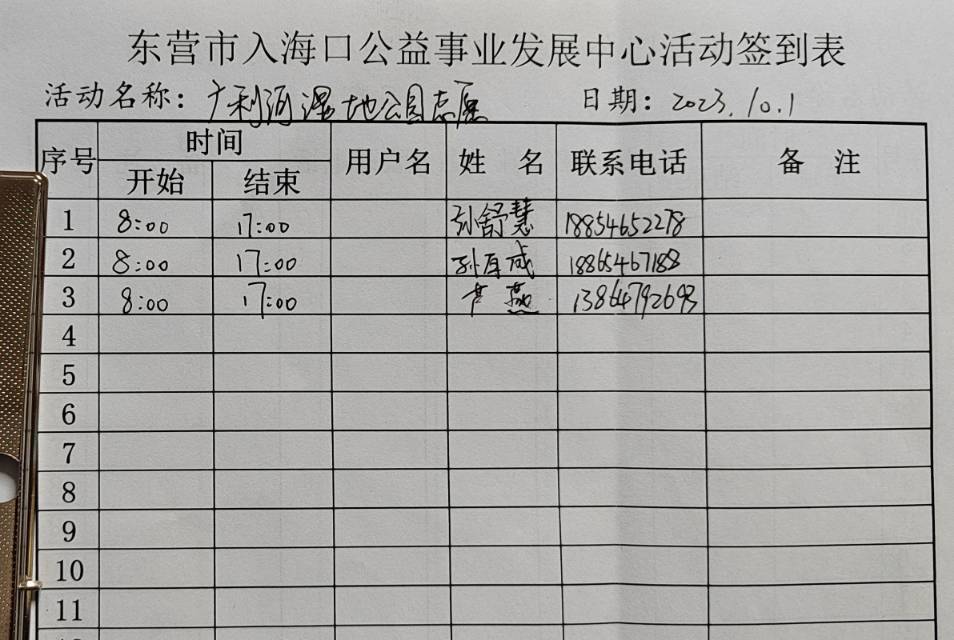 东营市入海口公益事业发展中心活动签到表
活动名称：广利河湿地公园志愿 日期：2023.10.1
序号 时间 用户名 姓 名 联系电话 备 注
开始 结束
1 8:00 17:00 孙舒慧 18854652278
2 8:00 17:00 18865467188
3 8:00 17:00 燕 13864792693
4
5
6
7
8
9
10
11